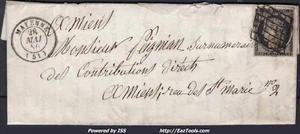 MAYENNE
26
MAI
50
(51)
a Amiens
Monsieur Sagnier Surnumeraire
des Contributions Direct
a Amiens, rue des Ste Marie no 2
Powered by ISS
http://EazTools.com